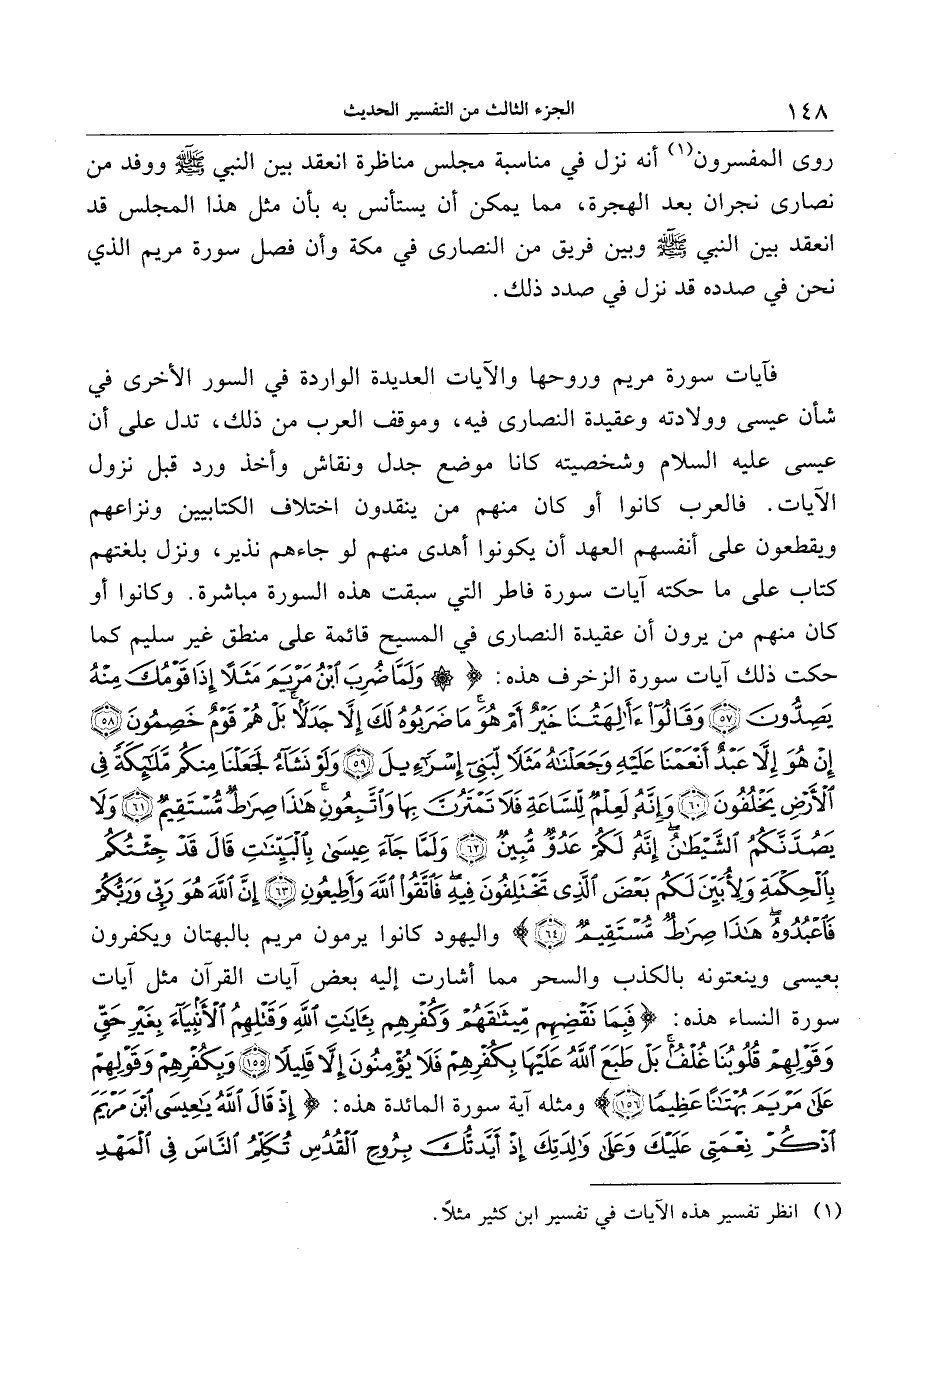 ١٤٨ الجزء الثالث من التفسير الحديث
روى المفسرون(١) أنه نزل في مناسبة مجلس مناظرة انعقد بين النبي ﷺ ووفد من
نصارى نجران بعد الهجرة، مما يمكن أن يستأنس به بأن مثل هذا المجلس قد
انعقد بين النبي ﷺ وبين فريق من النصارى في مكة وأن فصل سورة مريم الذي
نحن في صدده قد نزل في صدد ذلك.
فآيات سورة مريم وروحها والآيات العديدة الواردة في السور الأخرى في
شأن عيسى وولادته وعقيدة النصارى فيه، وموقف العرب من ذلك، تدل على أن
عيسى عليه السلام وشخصيته كانا موضع جدل ونقاش وأخذ ورد قبل نزول
الآيات. فالعرب كانوا أو كان منهم من ينقدون اختلاف الكتابيين ونزاعهم
ويقطعون على أنفسهم العهد أن يكونوا أهدى منهم لو جاءهم نذير، ونزل بلغتهم
كتاب على ما حكته آيات سورة فاطر التي سبقت هذه السورة مباشرة. وكانوا أو
كان منهم من يرون أن عقيدة النصارى في المسيح قائمة على منطق غير سليم كما
حكت ذلك آيات سورة الزخرف هذه: ﴿ ۞ وَلَمَّا ضُرِبَ ٱبْنُ مَرْيَمَ مَثَلًا إِذَا قَوْمُكَ مِنْهُ
يَصِدُّونَ ٥٧ وَقَالُوٓا۟ ءَأَٰلِهَتُنَا خَيْرٌ أَمْ هُوَ ۚ مَا ضَرَبُوهُ لَكَ إِلَّا جَدَلًۢا ۚ بَلْ هُمْ قَوْمٌ خَصِمُونَ ٥٨
إِنْ هُوَ إِلَّا عَبْدٌ أَنْعَمْنَا عَلَيْهِ وَجَعَلْنَٰهُ مَثَلًا لِّبَنِىٓ إِسْرَٰٓءِيلَ ٥٩ وَلَوْ نَشَآءُ لَجَعَلْنَا مِنكُم مَّلَٰٓئِكَةً فِى
ٱلْأَرْضِ يَخْلُفُونَ ٦٠ وَإِنَّهُۥ لَعِلْمٌ لِّلسَّاعَةِ فَلَا تَمْتَرُنَّ بِهَا وَٱتَّبِعُونِ ۚ هَٰذَا صِرَٰطٌ مُّسْتَقِيمٌ ٦١ وَلَا
يَصُدَّنَّكُمُ ٱلشَّيْطَٰنُ ۖ إِنَّهُۥ لَكُمْ عَدُوٌّ مُّبِينٌ ٦٢ وَلَمَّا جَآءَ عِيسَىٰ بِٱلْبَيِّنَٰتِ قَالَ قَدْ جِئْتُكُم
بِٱلْحِكْمَةِ وَلِأُبَيِّنَ لَكُم بَعْضَ ٱلَّذِى تَخْتَلِفُونَ فِيهِ ۖ فَٱتَّقُوا۟ ٱللَّهَ وَأَطِيعُونِ ٦٣ إِنَّ ٱللَّهَ هُوَ رَبِّى وَرَبُّكُمْ
فَٱعْبُدُوهُ ۚ هَٰذَا صِرَٰطٌ مُّسْتَقِيمٌ ٦٤ ﴾ واليهود كانوا يرمون مريم بالبهتان ويكفرون
بعيسى وينعتونه بالكذب والسحر مما أشارت إليه بعض آيات القرآن مثل آيات
سورة النساء هذه: ﴿ فَبِمَا نَقْضِهِم مِّيثَٰقَهُمْ وَكُفْرِهِم بِـَٔايَٰتِ ٱللَّهِ وَقَتْلِهِمُ ٱلْأَنۢبِيَآءَ بِغَيْرِ حَقٍّ
وَقَوْلِهِمْ قُلُوبُنَا غُلْفٌۢ ۚ بَلْ طَبَعَ ٱللَّهُ عَلَيْهَا بِكُفْرِهِمْ فَلَا يُؤْمِنُونَ إِلَّا قَلِيلًا ١٥٥ وَبِكُفْرِهِمْ وَقَوْلِهِمْ
عَلَىٰ مَرْيَمَ بُهْتَٰنًا عَظِيمًا ١٥٦ ﴾ ومثله آية سورة المائدة هذه: ﴿ إِذْ قَالَ ٱللَّهُ يَٰعِيسَى ٱبْنَ مَرْيَمَ
ٱذْكُرْ نِعْمَتِى عَلَيْكَ وَعَلَىٰ وَٰلِدَتِكَ إِذْ أَيَّدتُّكَ بِرُوحِ ٱلْقُدُسِ تُكَلِّمُ ٱلنَّاسَ فِى ٱلْمَهْدِ
(١) انظر تفسير هذه الآيات في تفسير ابن كثير مثلاً.